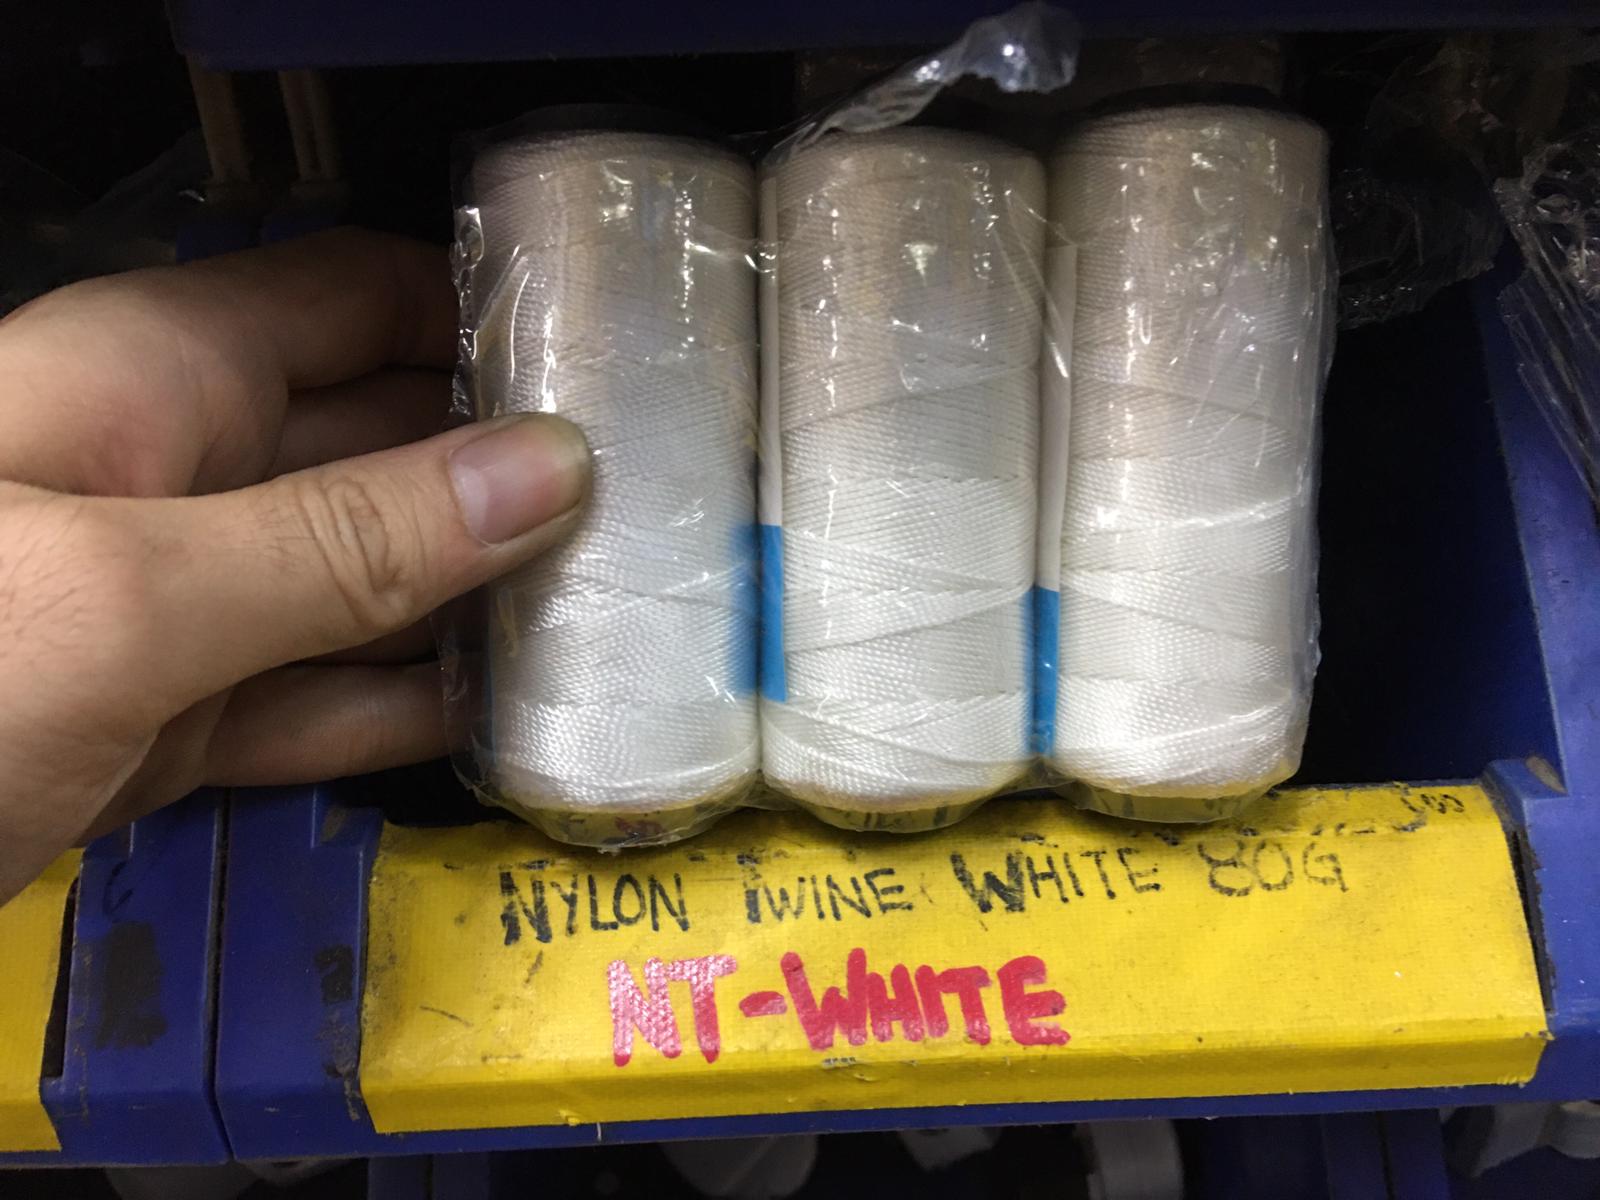 NYLON TWINE WHITE 80G
NT-WHITE